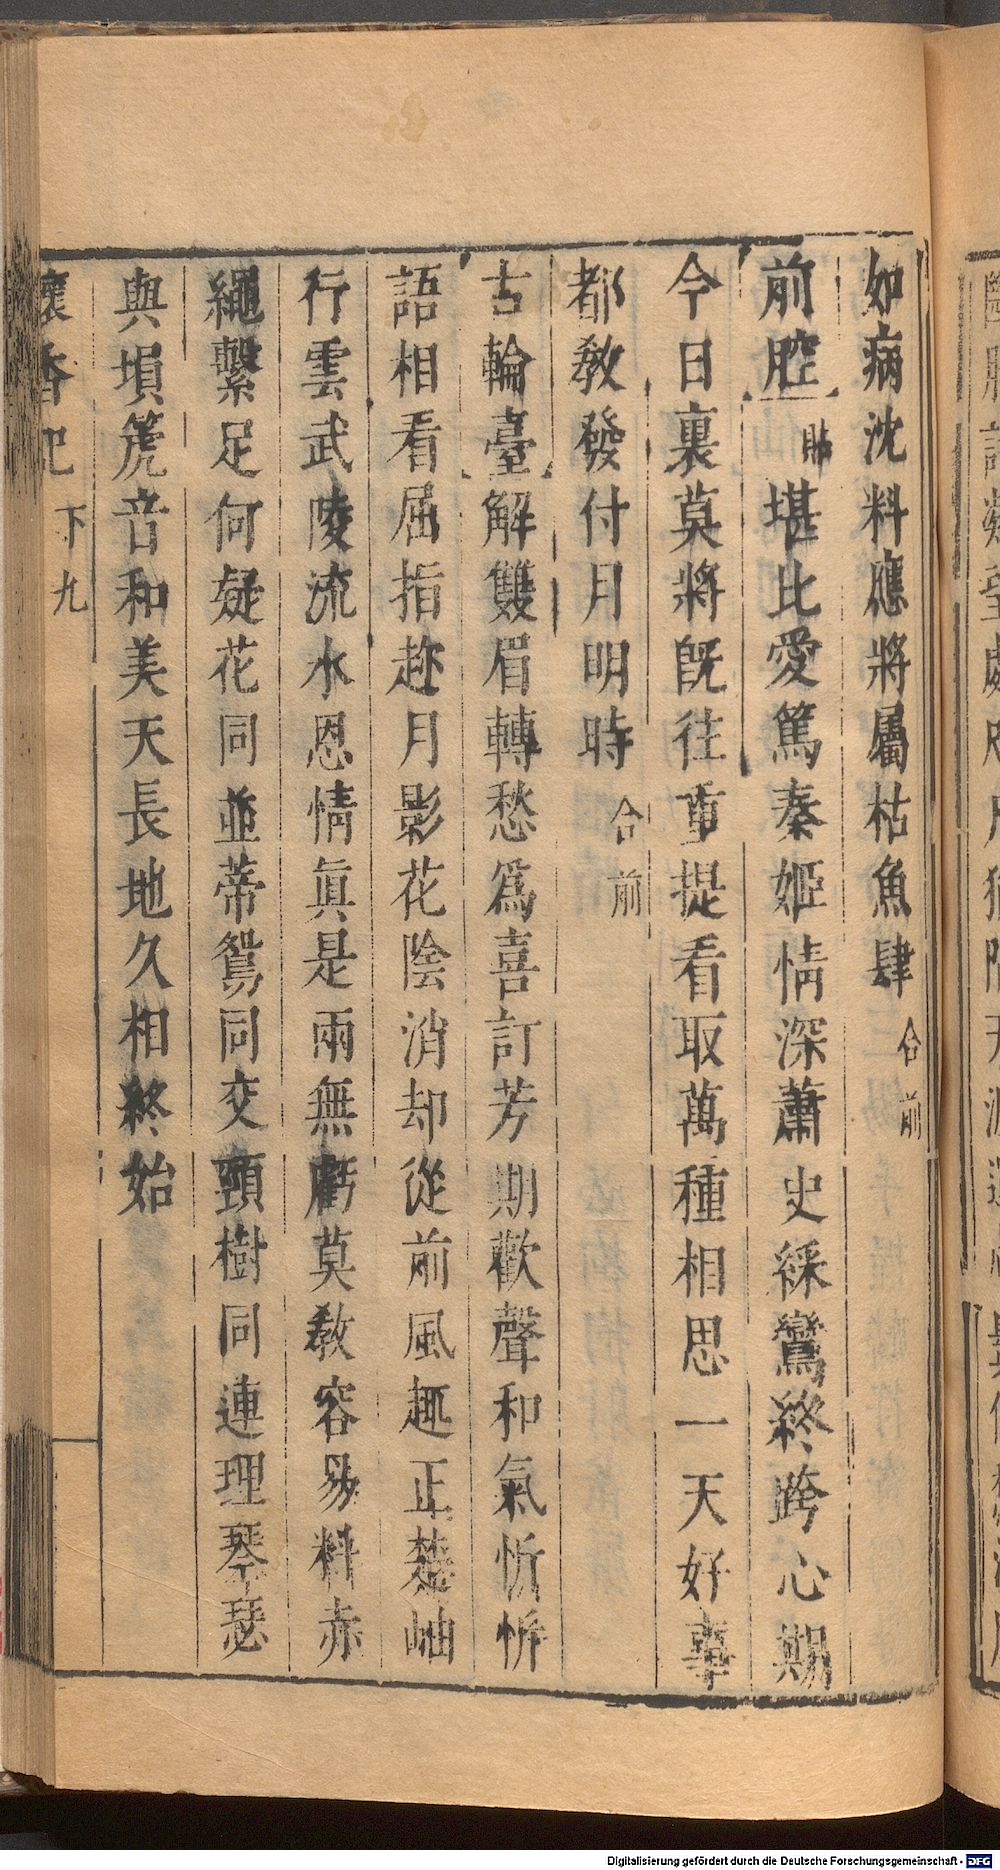 如病沈料應將屬枯魚肆合前
前腔貼堪比愛篤秦姬情深蕭史綵鸞終跨心期
今日裏莫將旣往重提看取萬種相思一天好事
都教發付月明時合前
古輪臺解雙眉轉愁爲喜訂芳期歡聲和氣忻忻
語相看屈指趂月影花陰消却從前風趣正楚岫
行雲武陵流水恩情眞是兩無虧莫教容易料赤
繩繫足何疑花同並蒂鴛同交頸樹同連理琴瑟
與塤箎音和美天長地久相終始
懷香記 下 九
Digitalisierung gefördert durch die Deutsche Forschungsgemeinschaft - DFG